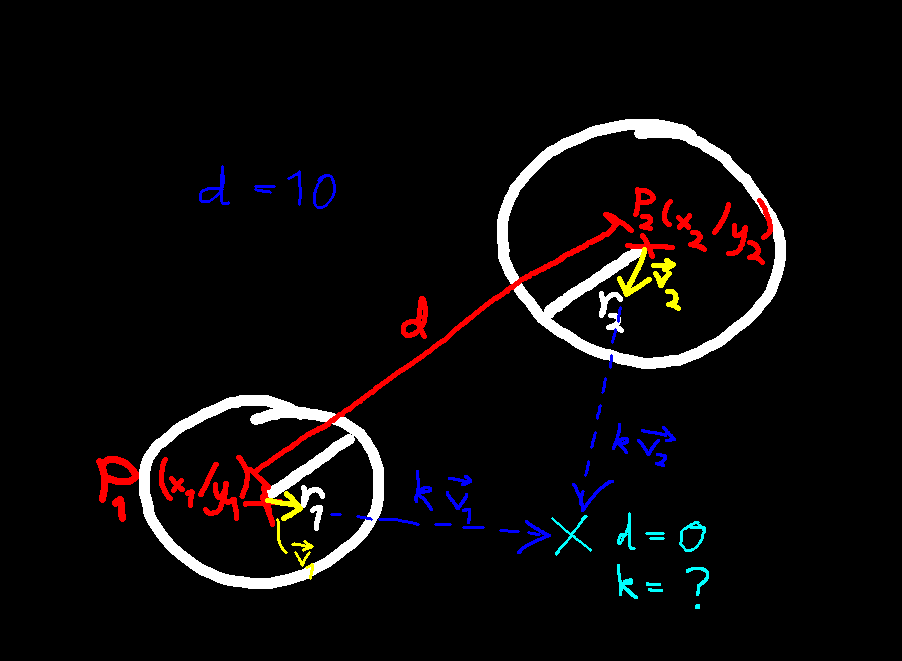 d = 10
P₂(x₂/y₂)
v⃗₂
r₂
d
k v⃗₂
P₁ (x₁/y₁)
r₁
k v⃗₁
v⃗₁
d = 0
k = ?